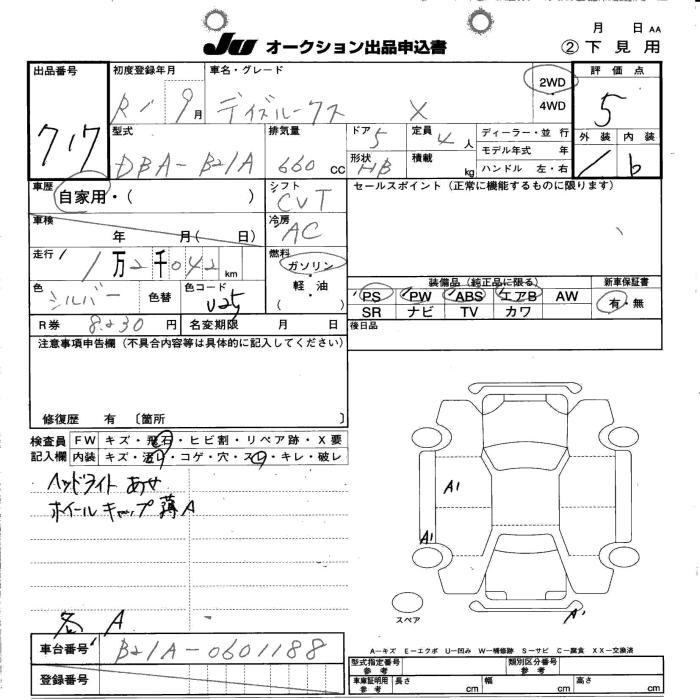 月 日 AA
JU オークション出品申込書 ② 下見用
出品番号 初度登録年月 車名・グレード 2WD 4WD 評価点
717 R1 9月 デイズルークス X 5
型式 排気量 ドア 5 定員 4人 ディーラー・並行 外装 内装
DBA-B21A 660cc 形状 HB 積載 kg モデル年式 年 ハンドル 左・右 b
車歴 シフト セールスポイント (正常に機能するものに限ります)
自家用・( ) CVT
車検 冷房
年 月( 日) AC
走行 燃料
1万2千042km ガソリン 装備品 (純正品に限る) 新車保証書
色 色コード 軽・油 PS PW ABS エアB AW 有・無
シルバー 色替 ( ) SR ナビ TV カワ
R券 8230円 名変期限 月 日 後日品
注意事項申告欄 (不具合内容等は具体的に記入してください)
修復歴 有 〔箇所 〕
検査員 FW キズ・飛石・ヒビ割・リペア跡・X要
記入欄 内装 キズ・汚れ・コゲ・穴・スレ・キレ・破レ
ヘッドライト あせ
ホイールキャップ 薄A
A1
A1
A1
スペア
A
車台番号 B21A-0601188
登録番号
A-キズ E-エクボ U-凹み W-補修跡 S-サビ C-腐食 XX-交換済
型式指定番号 参考 類別区分番号 参考
車庫証明用 参考 長さ cm 幅 cm 高さ cm